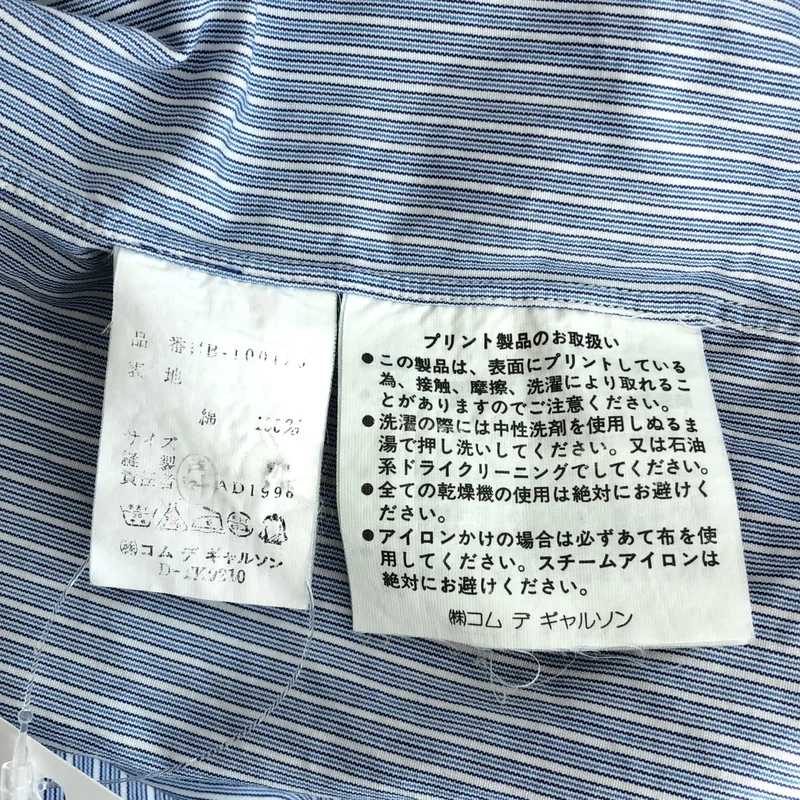 品番
表地
綿 100%
サイズ
縫製
責任者 AD1996
㈱コム デ ギャルソン
プリント製品のお取扱い
●この製品は、表面にプリントしている
為、接触、摩擦、洗濯により取れるこ
とがありますのでご注意ください。
●洗濯の際には中性洗剤を使用しぬるま
湯で押し洗いしてください。又は石油
系ドライクリーニングでしてください。
●全ての乾燥機の使用は絶対にお避けく
ださい。
●アイロンかけの場合は必ずあて布を使
用してください。スチームアイロンは
絶対にお避けください。
㈱コム デ ギャルソン